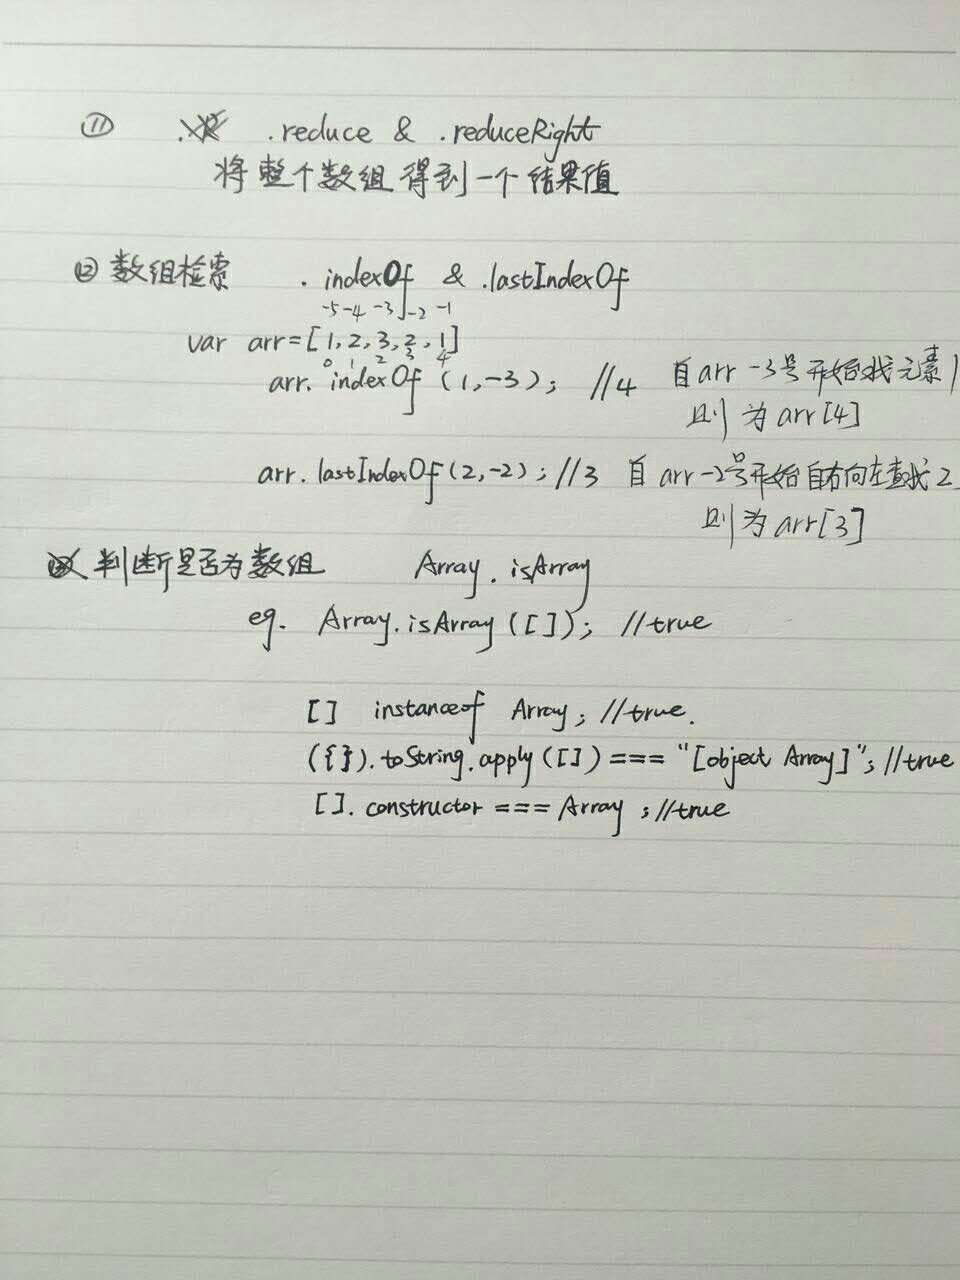 ⑪ .reduce & .reduceRight
将整个数组得到一个结果值
⑫ 数组检索 .indexOf & .lastIndexOf
-5 -4 -3 -2 -1
var arr=[1,2,3,2,1]
0 1 2 3 4
arr.indexOf(1,-3); //4 自arr -3号开始找元素1
则为arr[4]
arr.lastIndexOf(2,-2); //3 自arr-2号开始自右向左查找2
则为arr[3]
判断是否为数组 Array.isArray
eg. Array.isArray([]); //true
[] instanceof Array; //true.
({}).toString.apply([]) === "[object Array]"; //true
[].constructor === Array ; //true